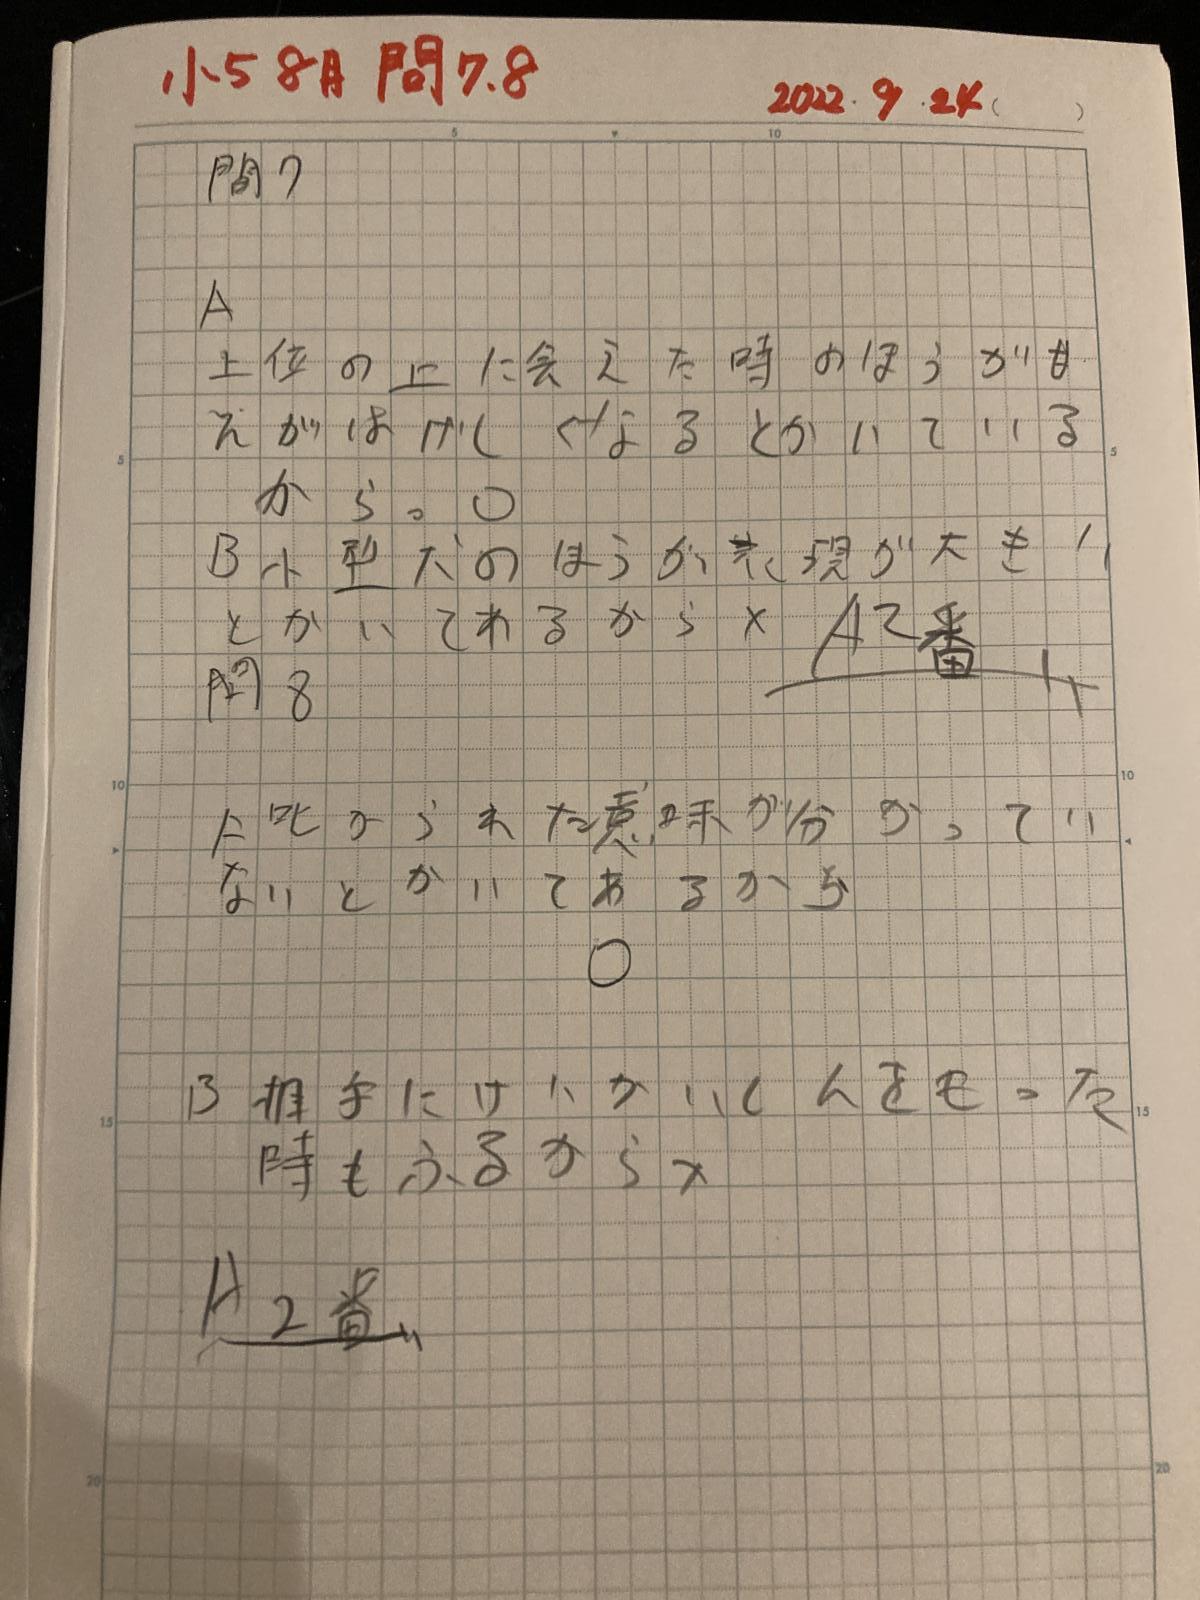 小5 8月 問7.8
2022.9.24( )
問7
A
上位の上に会えた時のほうがも
えがはげしくなるとかいている
から。○
B小型犬のほうが表現が大きい
とかいてあるから×
A 2番
問8
A 叱かられた意味が分かってい
ないとかいてあるから
○
B 相手にけいかいしんをもった
時もふるから×
A 2番